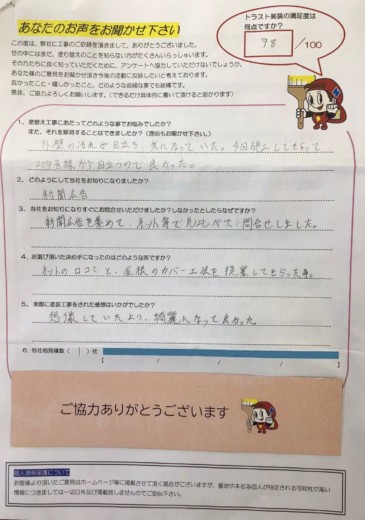 あなたのお声をお聞かせ下さい
トラスト美装の満足度は
何点ですか？
98 /100
この度は、弊社に工事のご依頼を頂きまして、ありがとうございました。
世の中にはまだ、塗り替えのことを知らない方がたくさんいらっしゃいます。
そのかたたちに良く知っていただくために、アンケートへ協力していただけないでしょうか。
あなた様のご意見をお聞かせ頂き今後の活動に反映したいと考えております。
良かったこと・嬉しかったこと、どのような些細な事でも結構です。
是非、ご協力よろしくお願いします。（できるだけ具体的に書いて頂けると助かります）
1、塗替え工事にあたってどのような事でお悩みでしたか？
また、それを解消することはできましたか？（理由もお聞かせ下さい。）
外壁の汚れが目立ち、気になっていた。今回
が目立つので良かった。
2、どのようにして当社をお知りになりましたか？
新聞広告
3、当社をお知りになりすぐにお問合せいただけましたか？しなかったとしたらなぜですか？
新聞広告を集めて、ネット等で見比べて問合せしました。
4、お選び頂いた決め手になったのはどのような所ですか？
ネットの口コミと、屋根のカバー工法を提案してもらった事。
5、実際に塗装工事をされた感想はいかがでしたか？
想像していたより、綺麗になって良かった。
6、他社相見積数（ ）社
ご協力ありがとうございます
個人情報保護について
お客様より頂いたご意見はホームページ等に掲載させて頂く場合がございますが、番地や本名等個人が特定される可能性が高い
情報につきましては一切口外及び掲載致しませんのでご安心下さい。